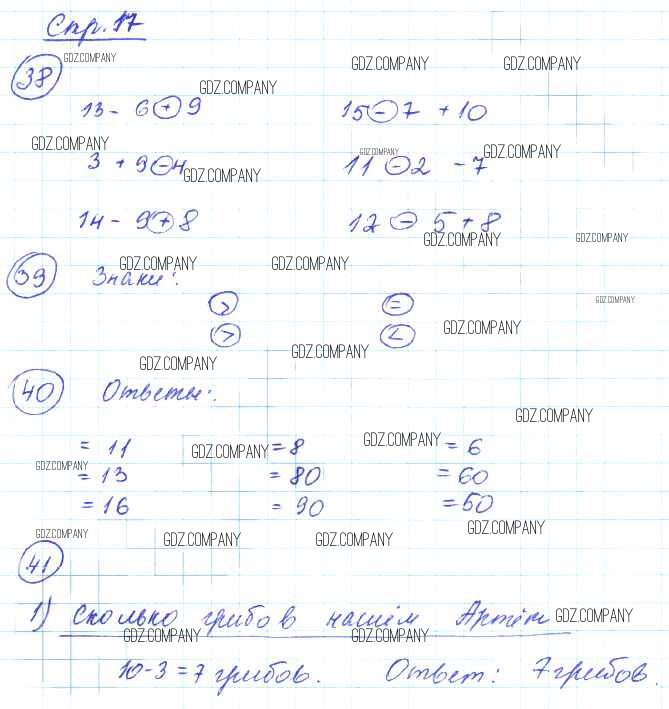 Стр. 17
38 GDZ.COMPANY GDZ.COMPANY GDZ.COMPANY
GDZ.COMPANY
13 - 6 + 9 15 - 7 + 10
GDZ.COMPANY GDZ.COMPANY GDZ.COMPANY
3 + 9 - 4 GDZ.COMPANY 11 - 2 - 7
14 - 9 + 8 12 - 5 + 8
GDZ.COMPANY GDZ.COMPANY
39 Знаки: GDZ.COMPANY GDZ.COMPANY
> = GDZ.COMPANY
> < GDZ.COMPANY
GDZ.COMPANY GDZ.COMPANY
40 Ответы:
GDZ.COMPANY
= 11 GDZ.COMPANY = 8 GDZ.COMPANY = 6
GDZ.COMPANY = 13 = 80 = 60
= 16 = 90 = 50
GDZ.COMPANY GDZ.COMPANY GDZ.COMPANY GDZ.COMPANY
41
1) Сколько грибов нашём Артём GDZ.COMPANY
GDZ.COMPANY GDZ.COMPANY
10 - 3 = 7 грибов. Ответ: 7 грибов.